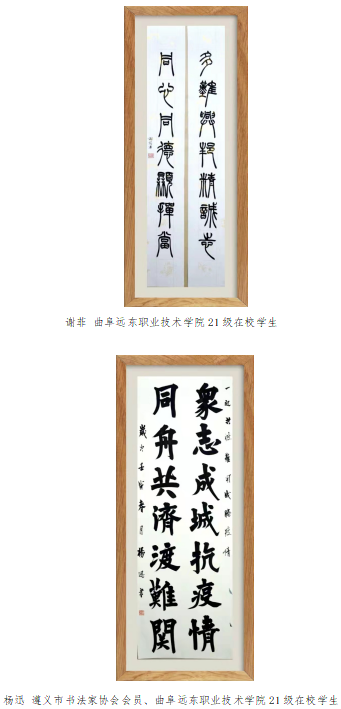 多難興邦精誠志
同心同德顯擔當
谢菲 曲阜远东职业技术学院 21 级在校学生
衆志成城抗疫情
同舟共濟渡難關
歲次壬寅春月楊迅書
杨迅 遵义市书法家协会会员、曲阜远东职业技术学院 21 级在校学生